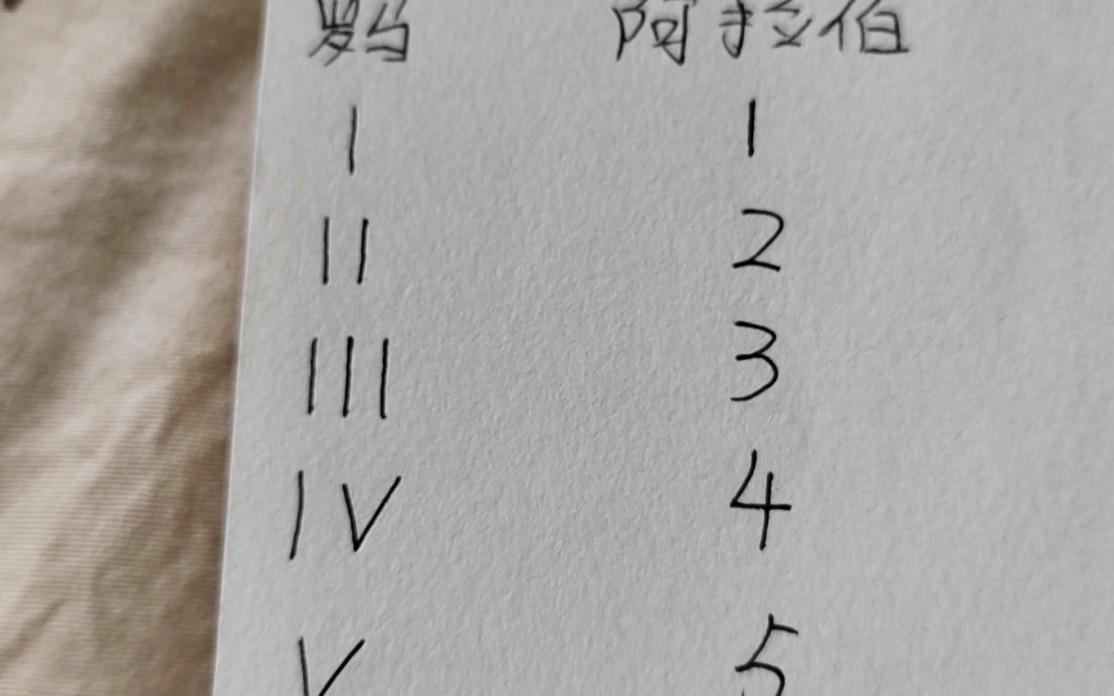 罗马 阿拉伯
I 1
II 2
III 3
IV 4
V 5